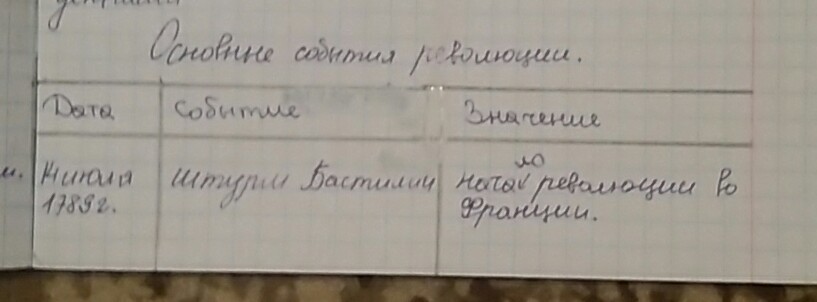 Основные события революции.
Дата
Событие
Значение
14 июля
1789г.
штурм Бастилии
начало революции во
Франции.